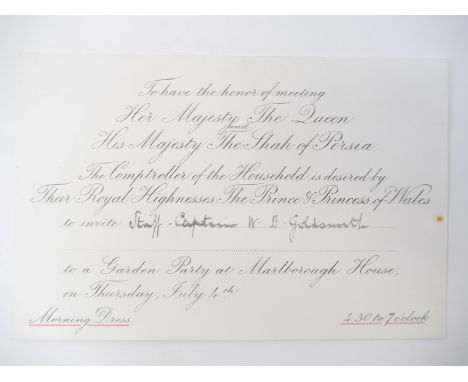 To have the honor of meeting
Her Majesty The Queen
and
His Majesty The Shah of Persia.
The Comptroller of the Household is desired by
Their Royal Highnesses The Prince & Princess of Wales
to invite Staff-Captain W. B. Goldsmith
to a Garden Party at Marlborough House,
on Thursday, July 4th
Morning Dress. 4.30 to 7 o'clock.